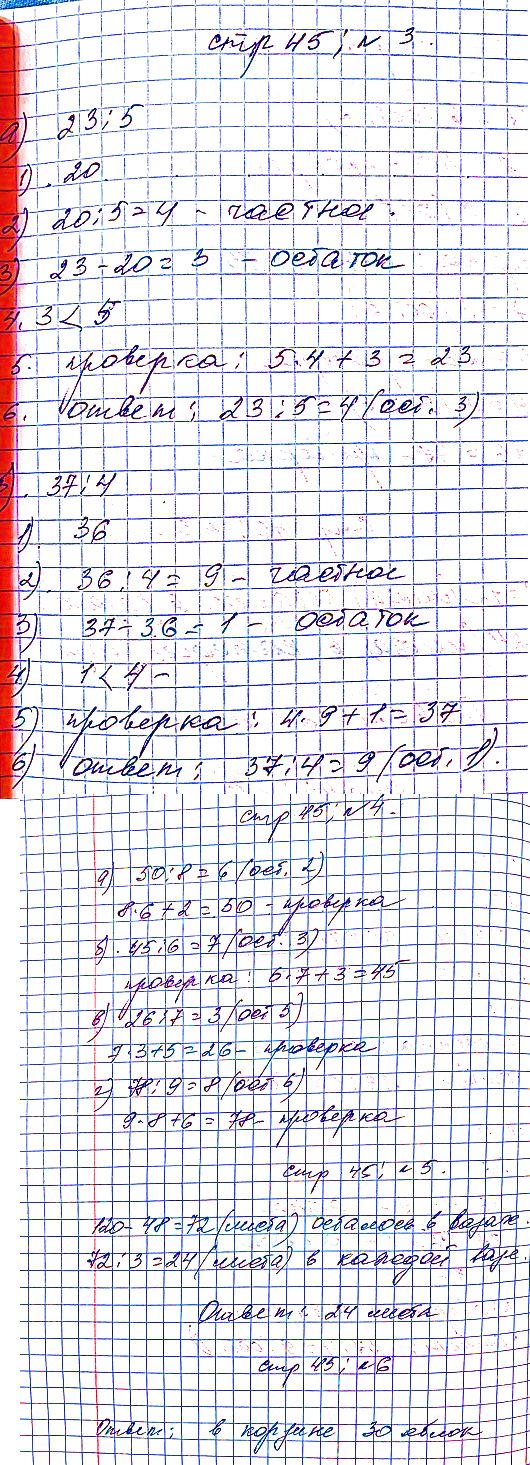 стр 45; № 3.
а) 23:5
1). 20
2) 20:5=4 - частное.
3) 23-20=3 - остаток
4. 3<5
5. проверка: 5·4+3=23
6. ответ: 23:5=4(ост. 3)
б). 37:4
1). 36
2). 36:4=9 - частное
3) 37-36=1 - остаток
4) 1<4 -
5) проверка: 4·9+1=37
6) ответ: 37:4=9(ост. 1).
стр 45; №4.
а) 50:8=6(ост. 2)
8·6+2=50 - проверка
б). 45:6=7(ост. 3)
проверка: 6·7+3=45
в) 26:7=3(ост 5)
7·3+5=26 - проверка
г) 78:9=8(ост 6)
9·8+6=78 - проверка
стр 45; №5.
120-48=72(листа) осталось в вазах.
72:3=24(листа) в каждой вазе.
Ответ: 24 листа
стр 45; №6
Ответ: в корзине 30 яблок